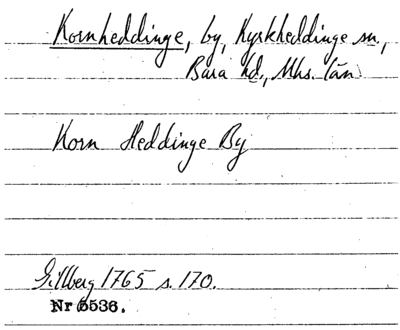 Kornheddinge, by, Kyrkheddinge sn.,
Bara hd., Mhs. län
Korn Heddinge By
Gillberg 1765 s. 170.
Nr 5536.